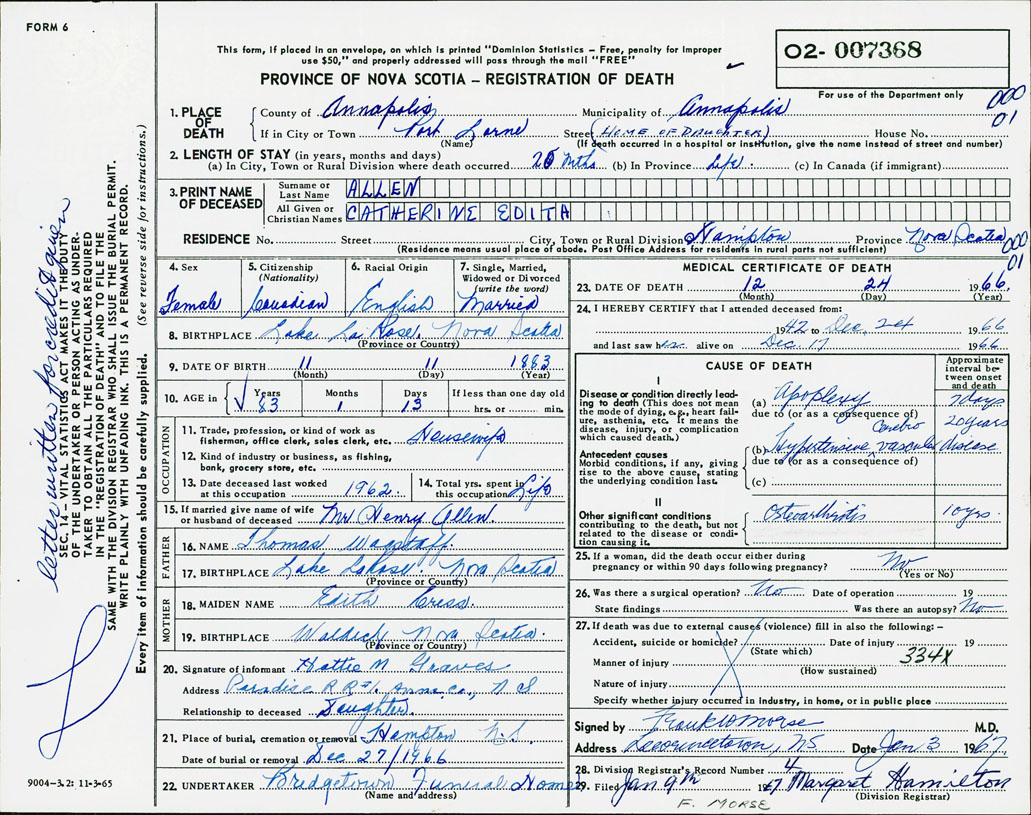 FORM 6
This form, if placed in an envelope, on which is printed "Dominion Statistics – Free, penalty for improper
use $50," and properly addressed will pass through the mail "FREE"
PROVINCE OF NOVA SCOTIA – REGISTRATION OF DEATH
O2- 007368
For use of the Department only
000
01
1. PLACE OF DEATH
County of Annapolis Municipality of Annapolis
If in City or Town Port Lorne Street (HOME OF DAUGHTER) House No.
(Name) (If death occurred in a hospital or institution, give the name instead of street and number)
2. LENGTH OF STAY (in years, months and days)
(a) In City, Town or Rural Division where death occurred 20 Mths. (b) In Province Life. (c) In Canada (if immigrant)
3. PRINT NAME OF DECEASED
Surname or Last Name ALLEN
All Given or Christian Names CATHERINE EDITA
RESIDENCE No. Street City, Town or Rural Division Hampton Province Nova Scotia
(Residence means usual place of abode. Post Office Address for residents in rural parts not sufficient)
000
01
4. Sex Female
5. Citizenship (Nationality) Canadian
6. Racial Origin English
7. Single, Married, Widowed or Divorced (write the word) Married
8. BIRTHPLACE Lake La Rose, Nova Scotia
(Province or Country)
9. DATE OF BIRTH 11 11 1883
(Month) (Day) (Year)
10. AGE in Years 83 Months 1 Days 13 If less than one day old hrs. or min.
OCCUPATION
11. Trade, profession, or kind of work as
fisherman, office clerk, sales clerk, etc. Housewife
12. Kind of industry or business, as fishing,
bank, grocery store, etc.
13. Date deceased last worked at this occupation 1962. 14. Total yrs. spent in this occupation Life
15. If married give name of wife
or husband of deceased Mr Henry Allen.
FATHER
16. NAME Thomas Wagstaff.
17. BIRTHPLACE Lake LaRose Nova Scotia
(Province or Country)
MOTHER
18. MAIDEN NAME Edith Cress.
19. BIRTHPLACE Waldeck Nova Scotia.
(Province or Country)
20. Signature of informant Hattie M Graves
Address Paradise R R #1. Anna. Co., N S
Relationship to deceased Daughter.
21. Place of burial, cremation or removal Hampton N.S.
Date of burial or removal Dec 27/1966
22. UNDERTAKER Bridgetown Funeral Home
(Name and address)
MEDICAL CERTIFICATE OF DEATH
23. DATE OF DEATH 12 24 1966.
(Month) (Day) (Year)
24. I HEREBY CERTIFY that I attended deceased from:
1942 to Dec 24 1966
and last saw her alive on Dec 17 1966
CAUSE OF DEATH
Approximate interval between onset and death
I
Disease or condition directly leading to death (This does not mean the mode of dying, e.g., heart failure, asthenia, etc. It means the disease, injury, or complication which caused death.)
(a) Apoplexy 7 days
due to (or as a consequence of)
Antecedent causes
Morbid conditions, if any, giving rise to the above cause, stating the underlying condition last.
(b) Hypertensive Cerebro vascular disease 20 years
due to (or as a consequence of)
(c)
II
Other significant conditions
contributing to the death, but not related to the disease or condition causing it.
Osteoarthritis 10 yrs.
25. If a woman, did the death occur either during
pregnancy or within 90 days following pregnancy? No
(Yes or No)
26. Was there a surgical operation? No Date of operation 19
State findings Was there an autopsy? No
27. If death was due to external causes (violence) fill in also the following: –
Accident, suicide or homicide? Date of injury 19
(State which)
Manner of injury 334X
(How sustained)
Nature of injury
Specify whether injury occurred in industry, in home, or in public place
Signed by Frank W Morse M.D.
Address Lawrencetown, NS Date Jan 3 1967
28. Division Registrar's Record Number 4
29. Filed Jan 9th 1967 Margaret Hamilton
(Division Registrar)
F. MORSE
9004–3.2: 11-3-65
letter written for
SEC. 14 – VITAL STATISTICS ACT MAKES IT THE DUTY
OF THE UNDERTAKER OR PERSON ACTING AS UNDER-
TAKER TO OBTAIN ALL THE PARTICULARS REQUIRED
IN THE "REGISTRATION OF DEATH" AND TO FILE THE
SAME WITH THE DIVISION REGISTRAR WHO SHALL ISSUE THE BURIAL PERMIT.
WRITE PLAINLY WITH UNFADING INK. THIS IS A PERMANENT RECORD.
Every item of information should be carefully supplied. (See reverse side for instructions.)